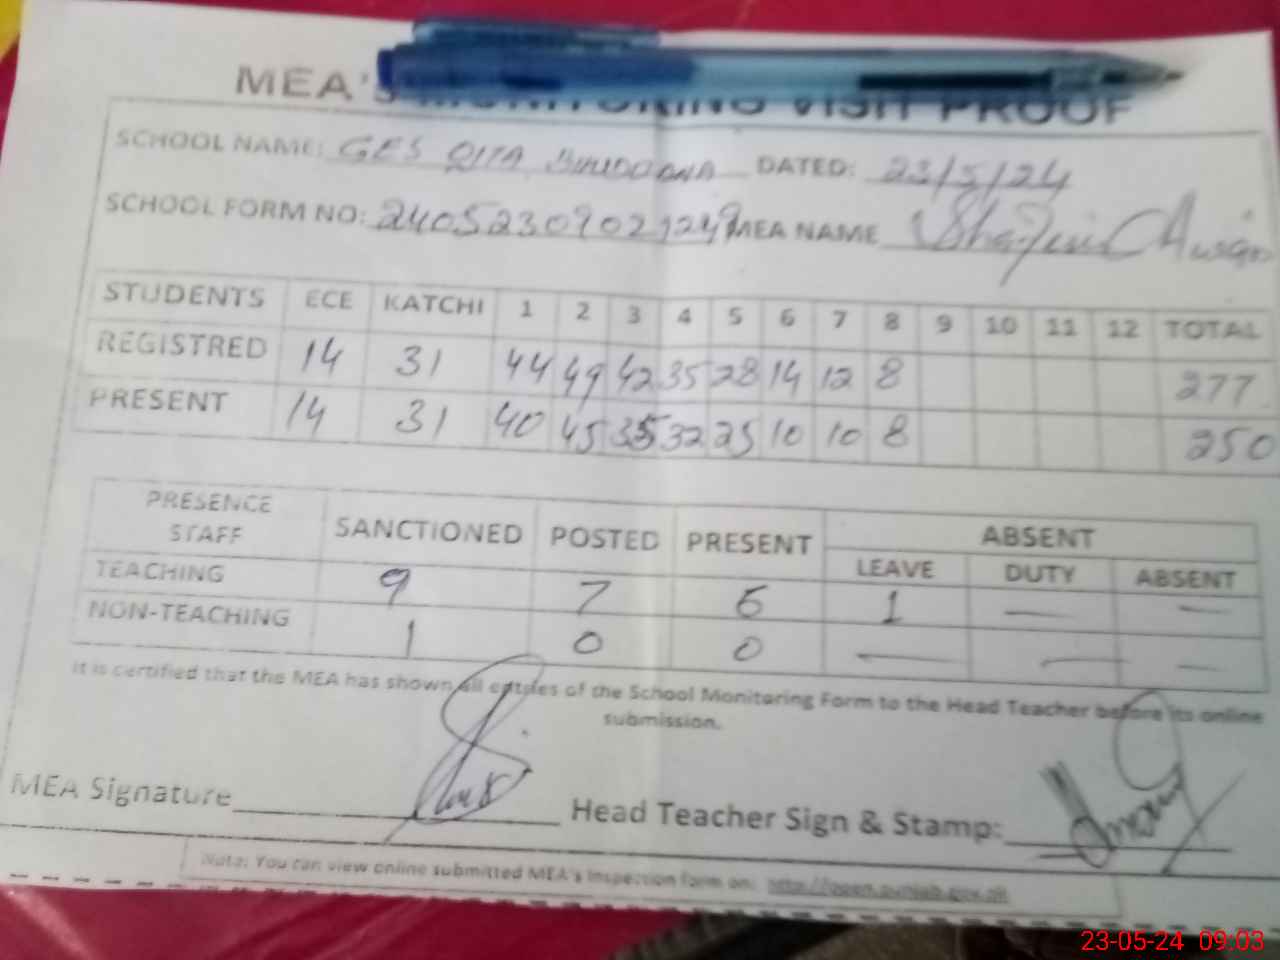 MEA'S MONITORING VISIT PROOF
SCHOOL NAME: GES QITA DATED: 23/5/24
SCHOOL FORM NO: MEA NAME
STUDENTS ECE KATCHI 1 2 3 4 5 6 7 8 9 10 11 12 TOTAL
REGISTRED 14 31 44 49 42 35 28 14 12 8 277
PRESENT 14 31 40 45 35 32 25 10 10 8 250
PRESENCE STAFF SANCTIONED POSTED PRESENT ABSENT
LEAVE DUTY ABSENT
TEACHING 9 7 6 1 — —
NON-TEACHING 1 0 0 — — —
It is certified that the MEA has shown all entries of the School Monitoring Form to the Head Teacher before its online
submission.
MEA Signature Head Teacher Sign & Stamp:
Note: You can view online submitted MEA's inspection form on: http://open.punjab.gov.pk
23-05-24 09:03